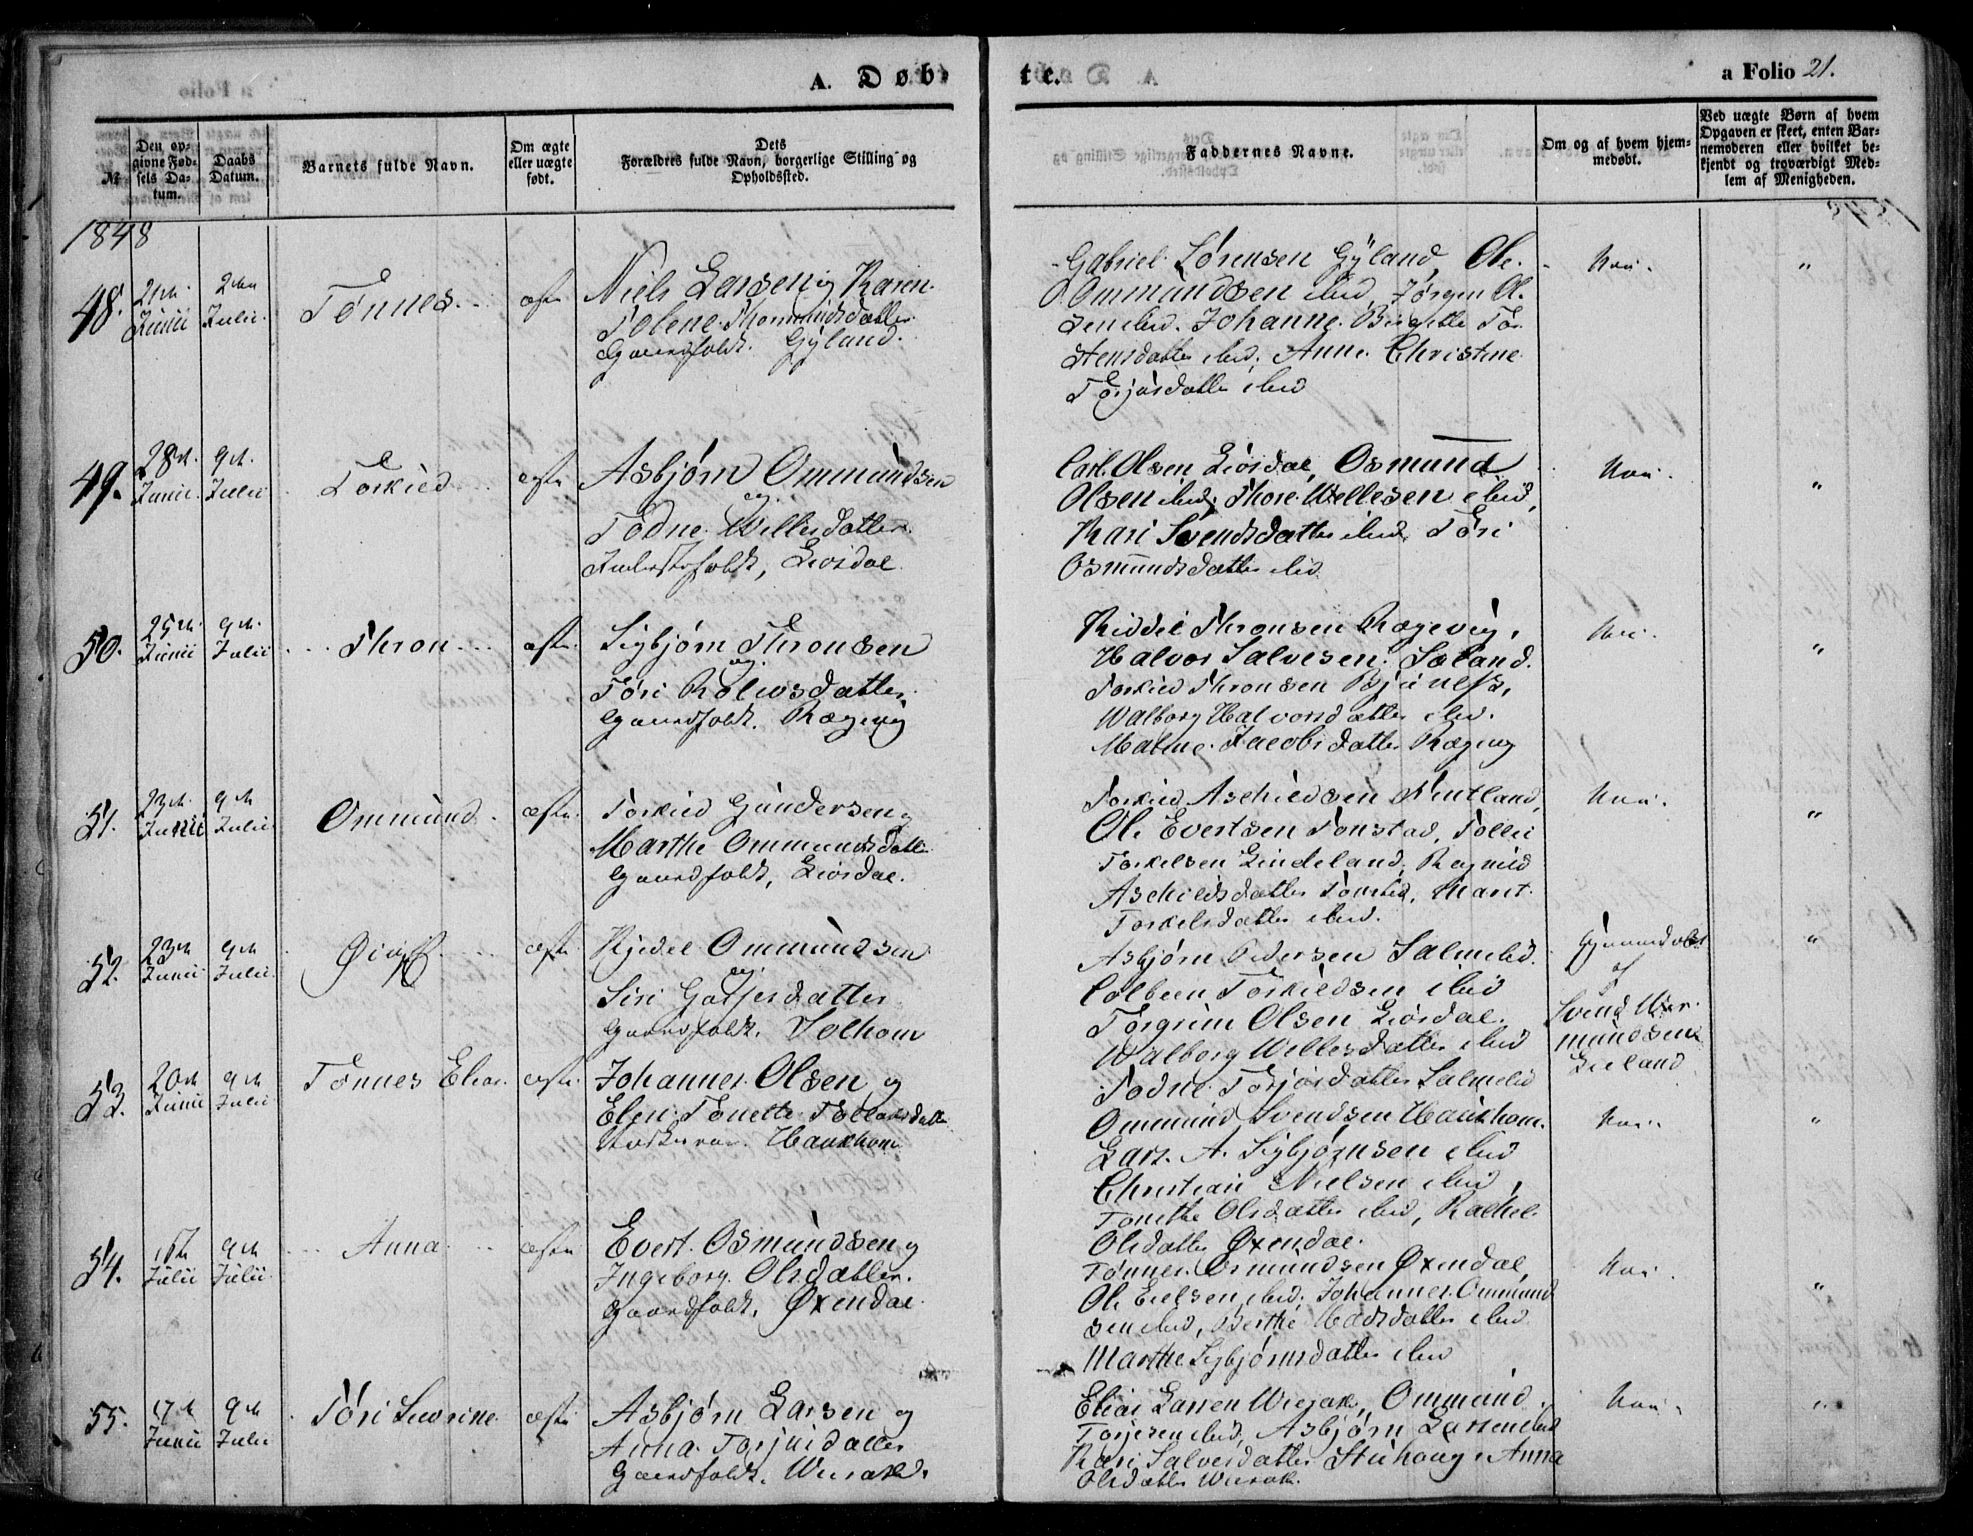 A. Døb-
te.
a Folio 21.
№
Den op-
givne Fød-
sels Da-
tum.
Daabs
Datum.
Barnets fulde Navn.
Om ægte
eller uægte
født.
Dets
Forældres fulde Navn, borgerlige Stilling og
Opholdssted.
Faddernes Navne.
Om og af hvem hjem-
medøbt.
Ved uægte Børn af hvem
Opgaven er skeet, enten Bar-
nemoderen eller hvilket be-
kjendt og troværdigt Med-
lem af Menigheden.
1848
48.
Junii
2den
Julii
Tønnes
ægte
Niels Larsen og Karen
Tolene
Gaardfolk. Gyland.
Gabriel Sørensen Gyland, Ole
Ommundsen ibid, Jørgen Ol-
sen ibid. Johanne Birgitte Tor-
stensdatter ibid. Anne Christine
Torjusdatter ibid
Nei.
"
49.
28de
Junii
9de
Julii
Torkild
ægte
Asbjørn Ommundsen
og
Todne Willesdatter
Liosdal
Carl Olsen Liosdal, Osmund
Olsen ibid, Thore Wellesen ibid,
Kari Svendsdatter ibid, Tøri
Osmundsdatter ibid
Nei.
"
50.
25de
Junii
9de
Julii
Thron
ægte
Sigbjørn Thronsen
og
Tøri Rolivsdatter
Gaardfolk. Rægevig
Kiddel Thronsen Rægevig,
Halvor Salvesen Søland.
Torkild Thronsen
Walborg Halvorsdatter ibid.
Malene Jacobsdatter Rægevig
Nei.
"
51.
23de
Junii
9de
Julii
Ommund
ægte
Torkild Gundersen og
Marthe Ommundsdatter
Gaardfolk, Liosdal.
Torkild Aschildsen Nutland,
Ole Evertsen Tonstad, Tollei
Torkelsen Lindeland, Ragnild
Aschildsdatter Tonstad, Marit
Torkelsdatter ibid.
Nei.
"
52.
23de
Junii
9de
Julii
ægte
Kjedel Ommundsen
og
Siri
Gaardfolk. Solhom
Asbjørn Pedersen Salmelid.
Colbeen Torkildsen ibid
Torgrim Olsen Liosdal.
Walborg Willesdatter ibid
Todne Torjusdatter Salmelid
Hjemmedøbt
af
Svend Wer-
mundsen
"
53.
20de
Junii
9de
Julii
Tønnes Elias
ægte
Johannes Olsen og
Elen Tonette
Haukhom
Ommund Svendsen Haukhom.
Lars A. Sigbjørnsen ibid
Christian Nielsen ibid,
Tonette Olsdatter ibid, Rachel
Olsdatter Øxendal.
Nei.
"
54.
1ste
Julii
9de
Julii
Anna
ægte
Evert Osmundsen og
Ingeborg Olsdatter
Gaardfolk, Øxendal.
Tønnes Osmundsen Øxendal,
Ole Eielsen ibid, Johannes Ommund-
sen ibid, Berthe Madsdatter ibid
Marthe Sigbjørnsdatter ibid
Nei.
"
55.
17de
Junii
9de
Julii
Tøri Severine
ægte
Asbjørn Larsen og
Anna Torjusdatter
Gaardfolk.
Elias Larsen Ommund
Torjesen ibid, Asbjørn Larsen ibid
Kari Salvesdatter Anna
Olsdatter
Nei.
"